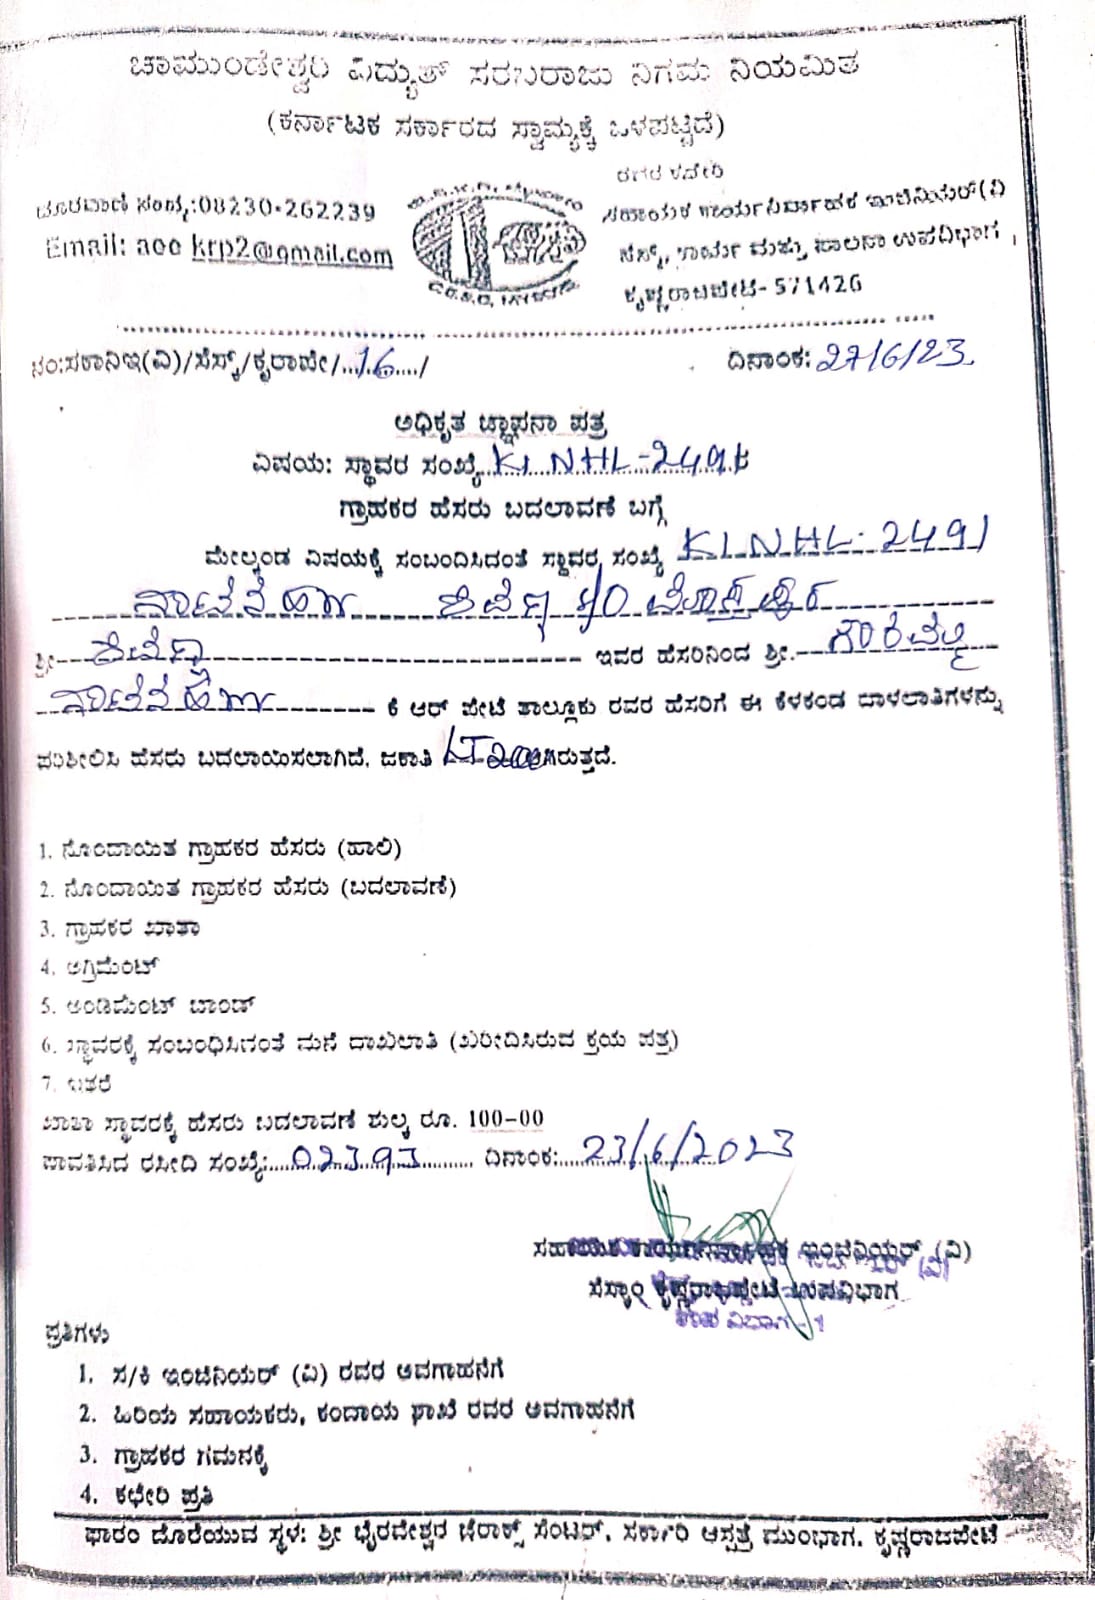 ಚಾಮುಂಡೇಶ್ವರಿ ವಿದ್ಯುತ್ ಸರಬರಾಜು ನಿಗಮ ನಿಯಮಿತ
(ಕರ್ನಾಟಕ ಸರ್ಕಾರದ ಸ್ವಾಮ್ಯಕ್ಕೆ ಒಳಪಟ್ಟಿದೆ)
ದೂರವಾಣಿ ಸಂಖ್ಯೆ:08230-262239
Email: aee krp2@gmail.com
ಸಹಾಯಕ ಕಾರ್ಯನಿರ್ವಾಹಕ ಇಂಜಿನಿಯರ್(ವಿ
ಸೆಸ್ಕ್, ಕಾರ್ಯ ಮತ್ತು ಪಾಲನಾ ಉಪವಿಭಾಗ ,
ಕೃಷ್ಣರಾಜಪೇಟೆ- 571426
ನಂ:ಸಕಾನಿಇ(ವಿ)/ಸೆಸ್ಕ್/ಕೃರಾಪೇ/....16..../
ದಿನಾಂಕ: 27/6/23.
ಅಧಿಕೃತ ಜ್ಞಾಪನಾ ಪತ್ರ
ವಿಷಯ: ಸ್ಥಾವರ ಸಂಖ್ಯೆ KLNHL-2491
ಗ್ರಾಹಕರ ಹೆಸರು ಬದಲಾವಣೆ ಬಗ್ಗೆ
ಮೇಲ್ಕಂಡ ವಿಷಯಕ್ಕೆ ಸಂಬಂದಿಸಿದಂತೆ ಸ್ಥಾವರ ಸಂಖ್ಯೆ KLNHL-2491
S/O
ಶ್ರೀ ಇವರ ಹೆಸರಿನಿಂದ ಶ್ರೀ.
ಕೆ ಆರ್ ಪೇಟೆ ತಾಲ್ಲೂಕು ರವರ ಹೆಸರಿಗೆ ಈ ಕೆಳಕಂಡ ದಾಳಲಾತಿಗಳನ್ನು
ಪರಿಶೀಲಿಸಿ ಹೆಸರು ಬದಲಾಯಿಸಲಾಗಿದೆ. ಜಕಾತಿ ಆಗಿರುತ್ತದೆ.
1. ನೊಂದಾಯಿತ ಗ್ರಾಹಕರ ಹೆಸರು (ಹಾಲಿ)
2. ನೊಂದಾಯಿತ ಗ್ರಾಹಕರ ಹೆಸರು (ಬದಲಾವಣೆ)
3. ಗ್ರಾಹಕರ ಖಾತಾ
4. ಅಗ್ರಿಮೆಂಟ್
5. ಅಂಡಿಮೆಂಟ್ ಬಾಂಡ್
6. ಸ್ಥಾವರಕ್ಕೆ ಸಂಬಂಧಿಸಿನಂತೆ ಮನೆ ದಾಖಲಾತಿ (ಖರೀದಿಸಿರುವ ಕ್ರಯ ಪತ್ರ)
7. ಇತರೆ
ಖಾತಾ ಸ್ಥಾವರಕ್ಕೆ ಹೆಸರು ಬದಲಾವಣೆ ಶುಲ್ಕ ರೂ. 100-00
ಪಾವತಿಸಿದ ರಸೀದಿ ಸಂಖ್ಯೆ:....02393.......... ದಿನಾಂಕ:....23/6/2023
ಸಹಾಯಕ ಕಾರ್ಯನಿರ್ವಾಹಕ ಇಂಜಿನಿಯರ್ (ವಿ)
ಸೆಸ್ಕಾಂ ಕೃಷ್ಣರಾಜಪೇಟೆ ಉಪವಿಭಾಗ
ಉಪ ವಿಭಾಗ - 1
ಪ್ರತಿಗಳು
1. ಸ/ಕಿ ಇಂಜಿನಿಯರ್ (ವಿ) ರವರ ಅವಗಾಹನೆಗೆ
2. ಹಿರಿಯ ಸಹಾಯಕರು, ಕಂದಾಯ ಶಾಖೆ ರವರ ಅವಗಾಹನೆಗೆ
3. ಗ್ರಾಹಕರ ಗಮನಕ್ಕೆ
4. ಕಛೇರಿ ಪ್ರತಿ
ಫಾರಂ ದೊರೆಯುವ ಸ್ಥಳ: ಶ್ರೀ ಭೈರವೇಶ್ವರ ಜೆರಾಕ್ಸ್ ಸೆಂಟರ್, ಸರ್ಕಾರಿ ಆಸ್ಪತ್ರೆ ಮುಂಭಾಗ, ಕೃಷ್ಣರಾಜಪೇಟೆ